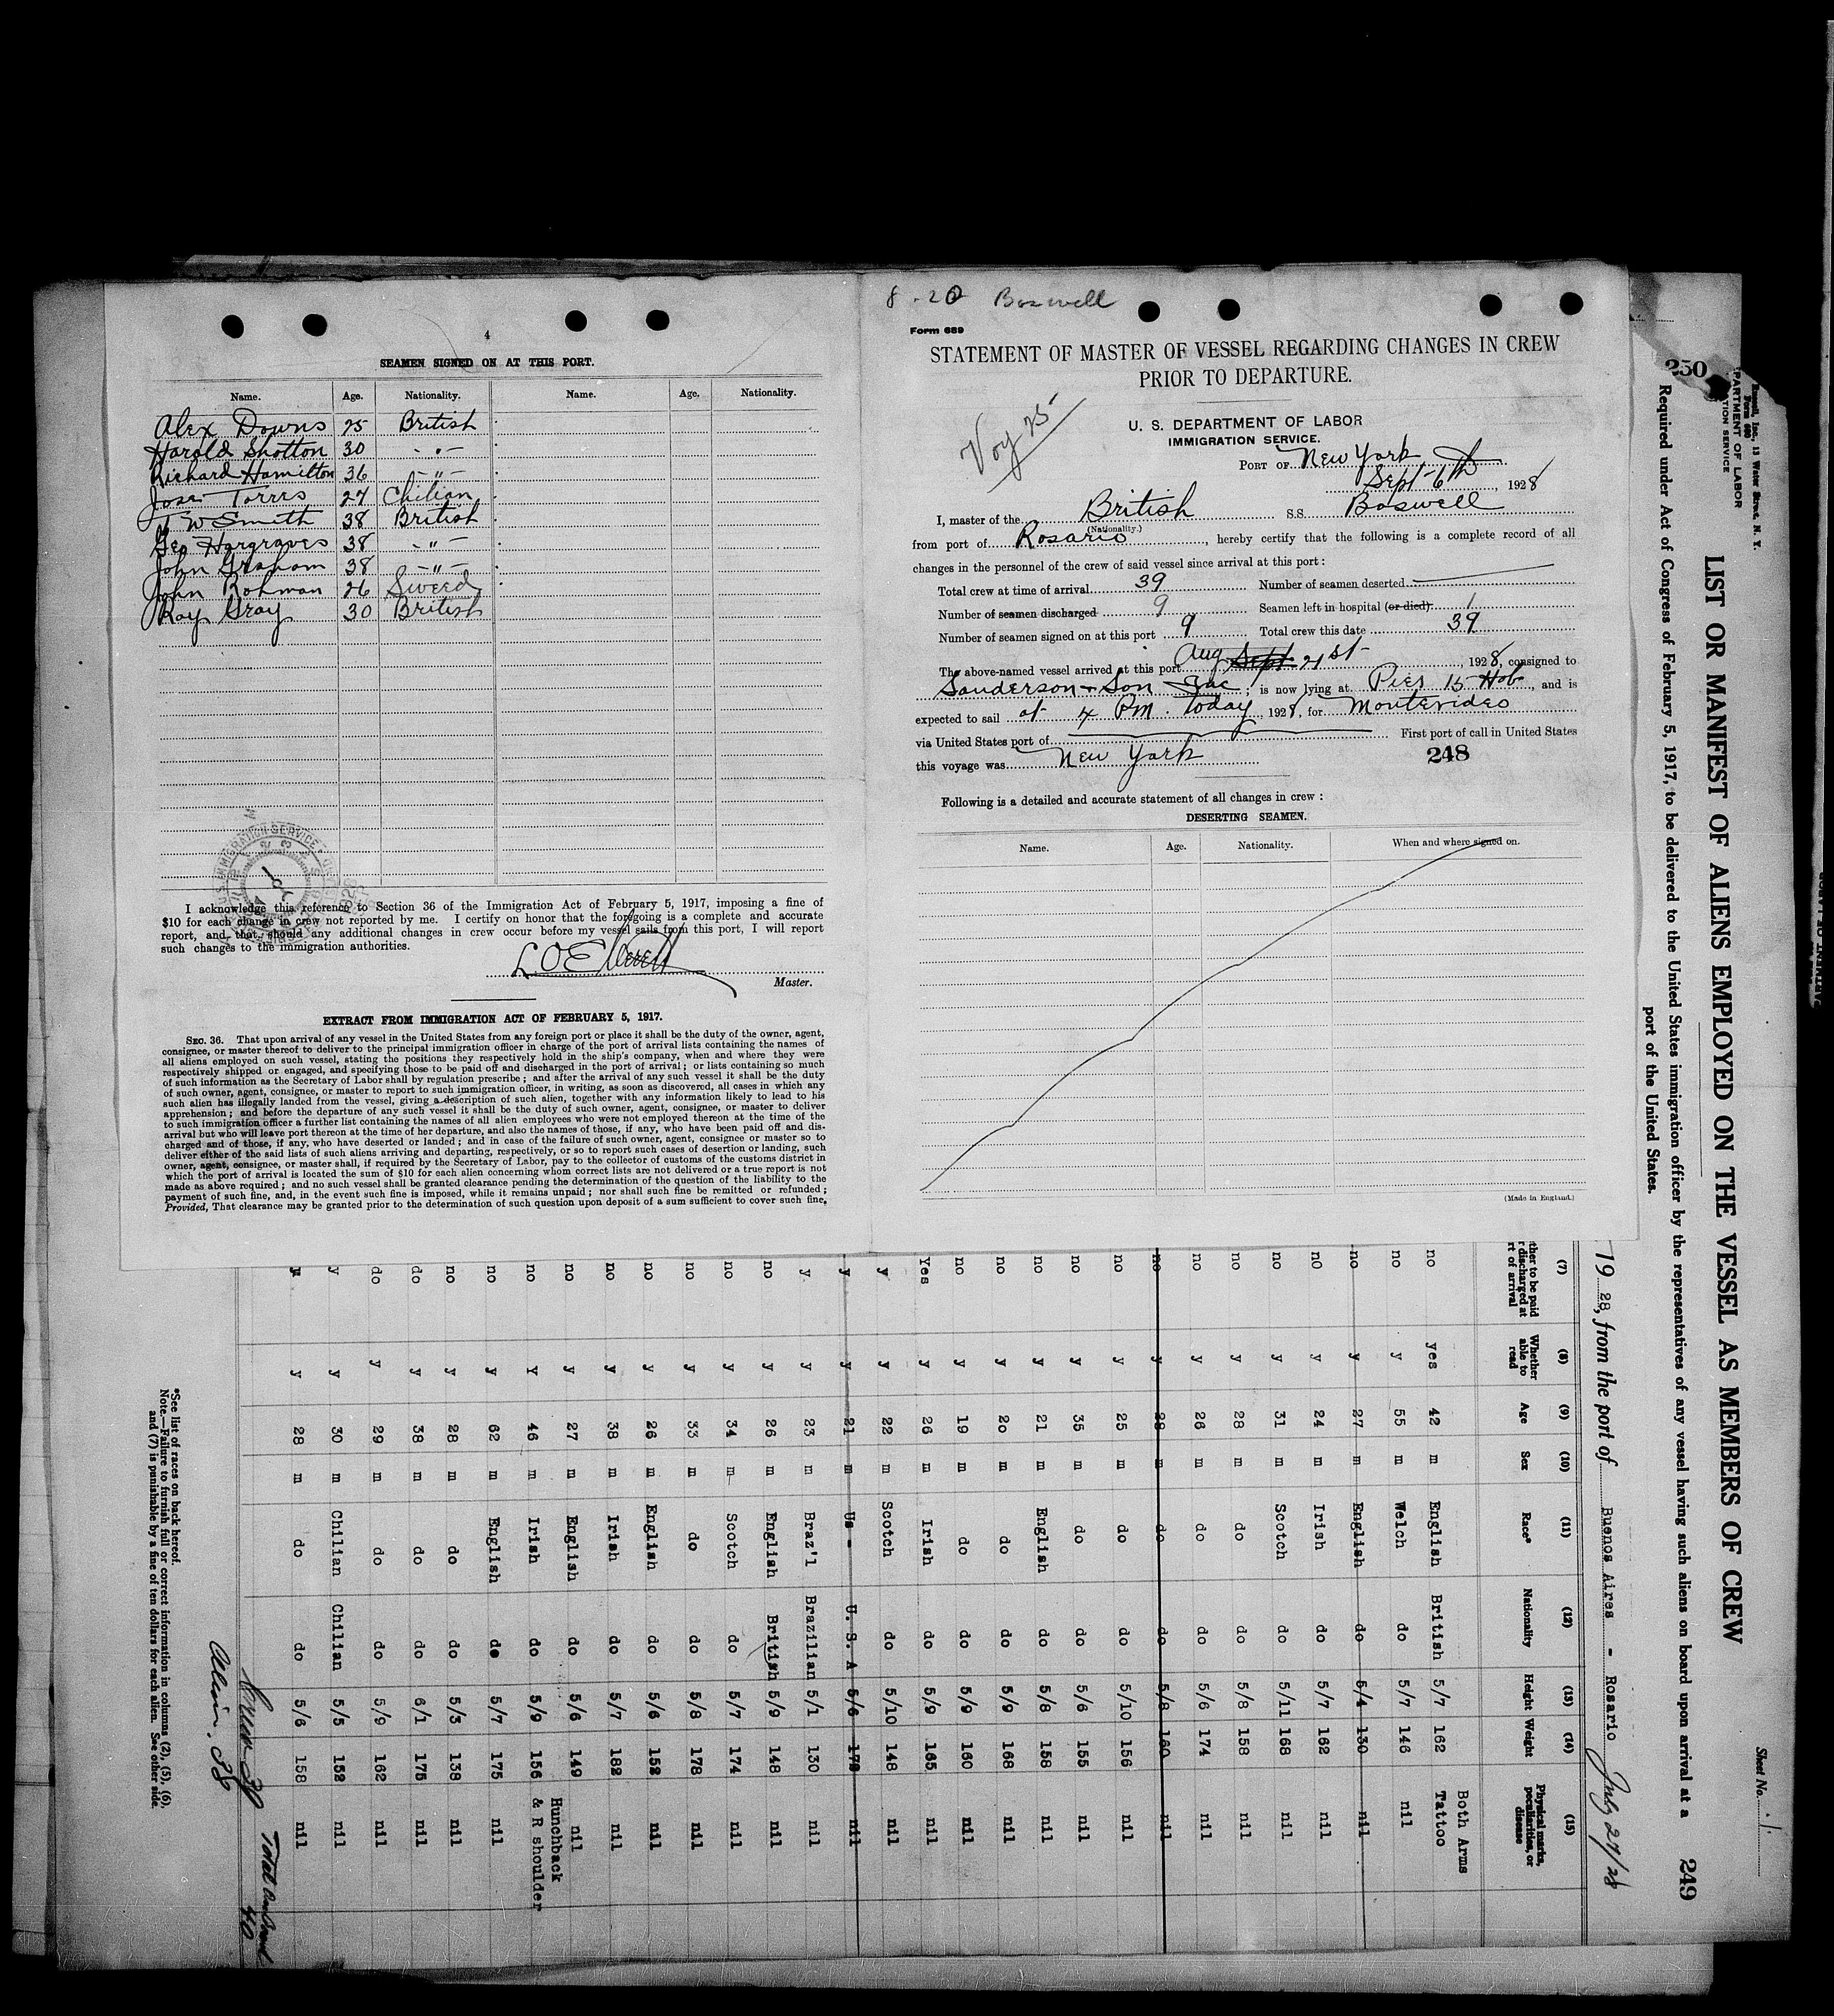 4
SEAMEN SIGNED ON AT THIS PORT.
Name. Age. Nationality. Name. Age. Nationality.
Alex Downs 25 British
Harold Shotton 30 - " -
Richard Hamilton 36 - " -
Jose Torres 27 Chilian
J W Smith 38 British
Geo Hargraves 38 - " -
John Graham 38 - " -
John Rohman 26 Sweed
Roy Gray 30 British
I acknowledge this reference to Section 36 of the Immigration Act of February 5, 1917, imposing a fine of
$10 for each change in crew not reported by me. I certify on honor that the foregoing is a complete and accurate
report, and that should any additional changes in crew occur before my vessel sails from this port, I will report
such changes to the immigration authorities.
Master.
EXTRACT FROM IMMIGRATION ACT OF FEBRUARY 5, 1917.
SEC. 36. That upon arrival of any vessel in the United States from any foreign port or place it shall be the duty of the owner, agent,
consignee, or master thereof to deliver to the principal immigration officer in charge of the port of arrival lists containing the names of
all aliens employed on such vessel, stating the positions they respectively hold in the ship's company, when and where they were
respectively shipped or engaged, and specifying those to be paid off and discharged in the port of arrival; or lists containing so much
of such information as the Secretary of Labor shall by regulation prescribe; and after the arrival of any such vessel it shall be the duty
of such owner, agent, consignee, or master to report to such immigration officer, in writing, as soon as discovered, all cases in which any
such alien has illegally landed from the vessel, giving a description of such alien, together with any information likely to lead to his
apprehension; and before the departure of any such vessel it shall be the duty of such owner, agent, consignee, or master to deliver
to such immigration officer a further list containing the names of all alien employees who were not employed thereon at the time of the
arrival but who will leave port thereon at the time of her departure, and also the names of those, if any, who have been paid off and dis-
charged and of those, if any, who have deserted or landed; and in case of the failure of such owner, agent, consignee or master so to
deliver either of the said lists of such aliens arriving and departing, respectively, or so to report such cases of desertion or landing, such
owner, agent, consignee, or master shall, if required by the Secretary of Labor, pay to the collector of customs of the customs district in
which the port of arrival is located the sum of $10 for each alien concerning whom correct lists are not delivered or a true report is not
made as above required; and no such vessel shall be granted clearance pending the determination of the question of the liability to the
payment of such fine, and, in the event such fine is imposed, while it remains unpaid; nor shall such fine be remitted or refunded;
Provided, That clearance may be granted prior to the determination of such question upon deposit of a sum sufficient to cover such fine.
8-20 Boswell
Form 689
STATEMENT OF MASTER OF VESSEL REGARDING CHANGES IN CREW
PRIOR TO DEPARTURE.
Voy 25
U. S. DEPARTMENT OF LABOR
IMMIGRATION SERVICE.
PORT OF New York
Sept 6th, 1928
I, master of the British S.S. Boswell
(Nationality.)
from port of Rosario, hereby certify that the following is a complete record of all
changes in the personnel of the crew of said vessel since arrival at this port:
Total crew at time of arrival 39 Number of seamen deserted
Number of seamen discharged 9 Seamen left in hospital (or died) 1
Number of seamen signed on at this port 9 Total crew this date 39
The above-named vessel arrived at this port Aug Sept 21st, 1928, consigned to
Sanderson & Son Inc; is now lying at Pier 15 Hob, and is
expected to sail at 4 PM. today, 1928, for Montevideo
via United States port of First port of call in United States
this voyage was New York 248
Following is a detailed and accurate statement of all changes in crew:
DESERTING SEAMEN.
Name. Age. Nationality. When and where signed on.
(Made in England.)
250
Sheet No. 1
LIST OR MANIFEST OF ALIENS EMPLOYED ON THE VESSEL AS MEMBERS OF CREW
249
Required under Act of Congress of February 5, 1917, to be delivered to the United States immigration officer by the representatives of any vessel having such aliens on board upon arrival at a
port of the United States.
1928, from the port of Buenos Aires - Rosario July 27/28
(7) (8) (9) (10) (11) (12) (13) (14) (15)
Whether able to read Age Sex Race* Nationality Height Weight Physical marks, peculiarities, or disease
no yes 42 m English British 5/7 162 Both Arms Tattoo
no y 55 m Welch do 5/7 146 nil
no y 27 m English do 5/4 130 nil
no y 24 m Irish do 5/7 162 nil
no y 31 m Scotch do 5/11 168 nil
no y 28 m do do 5/8 158 nil
no y 26 m do do 5/6 174 nil
no y 28 m do do 5/8 160 nil
no y 25 m do do 5/10 156 nil
no y 35 m do do 5/6 155 nil
no y 21 m English do 5/8 158 nil
no y 20 m do do 5/9 168 nil
no y 19 m do do 5/9 160 nil
Yes y 26 m Irish do 5/9 165 nil
y y 22 m Scotch do 5/10 148 nil
y y 21 m Us - U. S. A 5/6 178 nil
y y 23 m Braz'l Brazilian 5/1 130 nil
no y 26 m English British 5/9 148 nil
no y 34 m Scotch do 5/7 174 nil
no y 33 m do do 5/8 178 nil
no y 26 m English do 5/6 152 nil
no y 38 m Irish do 5/7 182 nil
no y 27 m English do 5/6 149 nil
no Y 46 m Irish do 5/9 156 Hunchback & R shoulder
no y 62 m English do 5/7 175 nil
no y 28 m do do 5/3 138 nil
do y 38 m do do 6/1 175 nil
do y 29 m do do 5/9 162 nil
y y 30 m Chilian Chilian 5/5 152 nil
y y 28 m do do 5/6 158 nil
*See list of races on back hereof.
Note.—Failure to furnish full or correct information in columns (2), (5), (6),
and (7) is punishable by a fine of ten dollars for each alien. See other side.